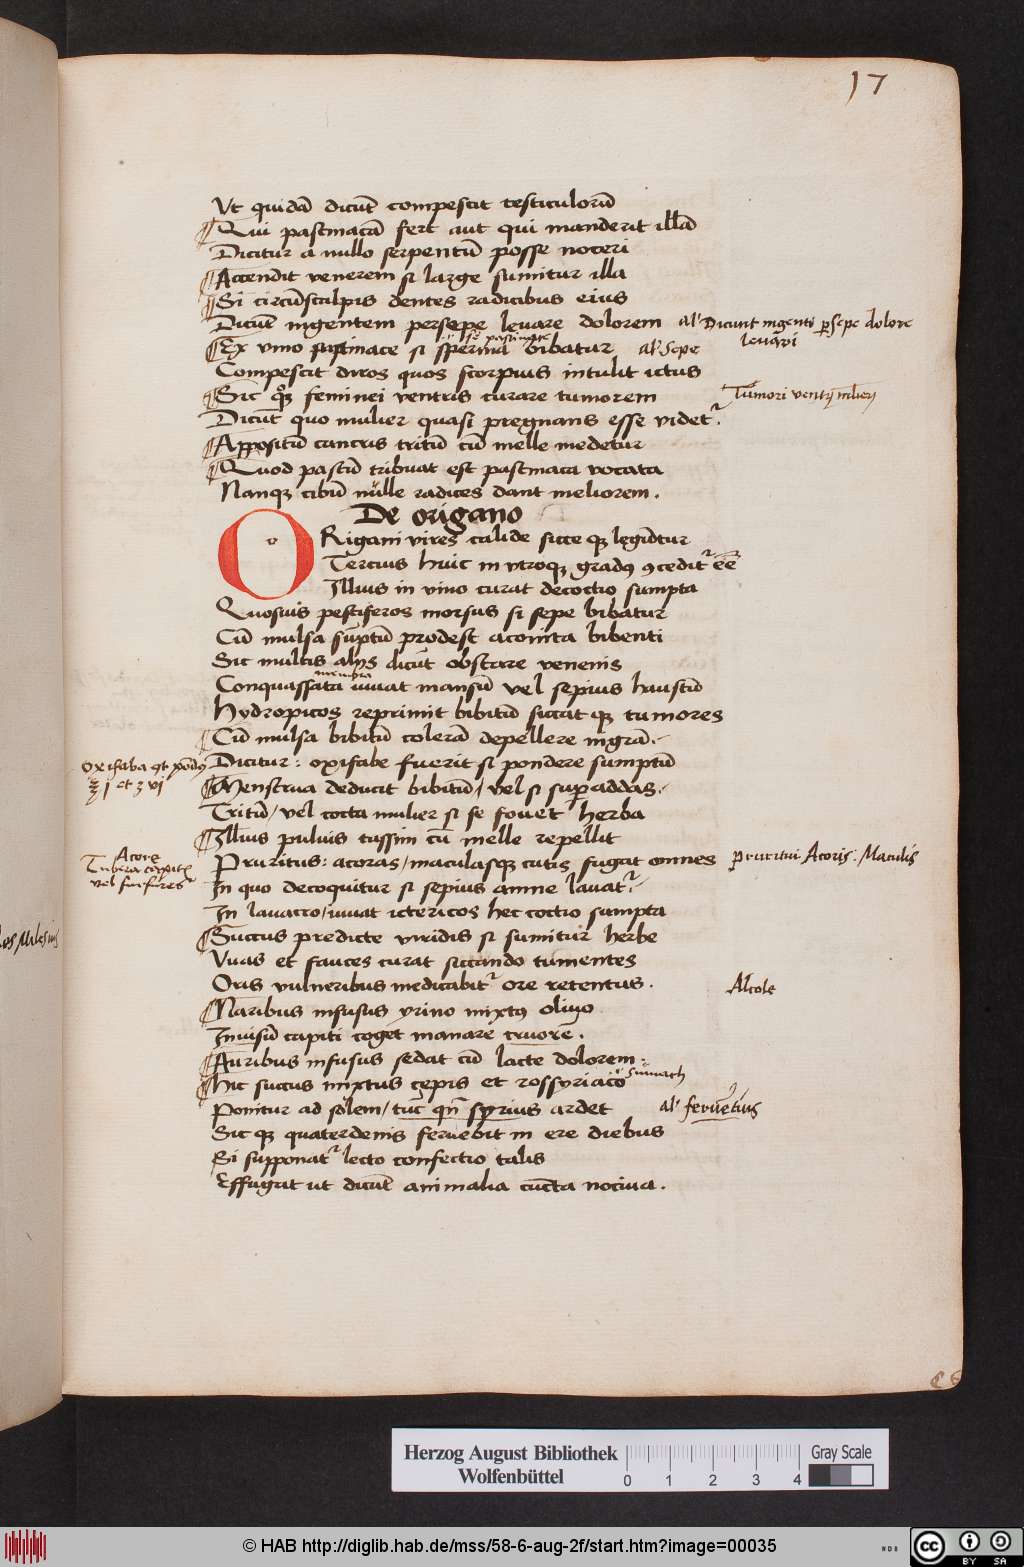 17
Ut quidā dicūt compescit testiculorū
Qui pastinacā fert aut qui manderit illā
Dicitur a nullo serpentū posse noceri
Accendit venerem si large sumitur illa
Si circūscalpis dentes radicibus eius
Dicūt ingentem persepe levare dolorem al' Dicunt ingenti ꝑsepe dolore levari
Ex vino pastinace si sperma bibatur al' sepe
Compescit diros quos scorpius intulit ictus
Sic qꝫ feminei ventris curare tumorem Tumori
Dicūt quo mulier quasi pregnans esse videt᷑.
Appositū cancris tritū cū melle medetur
Quod pastū tribuat est pastinaca vocata
Nanqꝫ cibū nulle radices dant meliorem.
De origano
ORigani vires calide sicce qꝫ legūtur
Tercius huic in utroqꝫ gradꝰ ꝯcedit᷑ eē
Illius in vino curat decoctio sumpta
Quosuis pestiferos morsus si sepe bibatur
Cū mulsa sūptū prodest aconita bibenti
Sic multis alijs dicūt obstare venenis
membra
Conquassata iuuat mansū vel sepius haustū
Hydropicos reprimit bibitū siccat qꝫ tumores
Cū mulsa bibitū colerā depellere nigrā.
oxifaba Dicitur: oxifabe fuerit si pondere sumptū
Menstrua deducit bibitū/ vel si suꝑaddas.
Tritū/ vel cocta mulier si se fouet herba
Illius puluis tussim cū melle repellit
Acore
Pruritus: acoras/ maculasqꝫ cutis fugat omnes pruritui Acoris: Maculis
vel furfures In quo decoquitur si sepius amne lavat᷑.
In lauacro/ iuuat ictericos hec coctio sumpta
Succus predicte viridis si sumitur herbe
Vuas et fauces curat siccando tumentes
Oris vulneribus medicabit᷑ ore retentus. Alcole
Naribus infusus yrino mixtꝰ oliuo
Inuisū capiti coget manare cruorē.
Auribus infusus sedat cū lacte dolorem:
Hic succus mixtus cepis et rossyriaco Sumach
Ponitur ad solem/ tūc qn̄ syrius ardet al' feruētius
Sic qꝫ quaterdenis feruebit in ere diebus
Si supponat᷑ lecto confectio talis
Effugat ut dicūt animalia cūcta nociua.
Herzog August Bibliothek
Wolfenbüttel
0 1 2 3 4
Gray Scale
© HAB http://diglib.hab.de/mss/58-6-aug-2f/start.htm?image=00035
cc BY SA